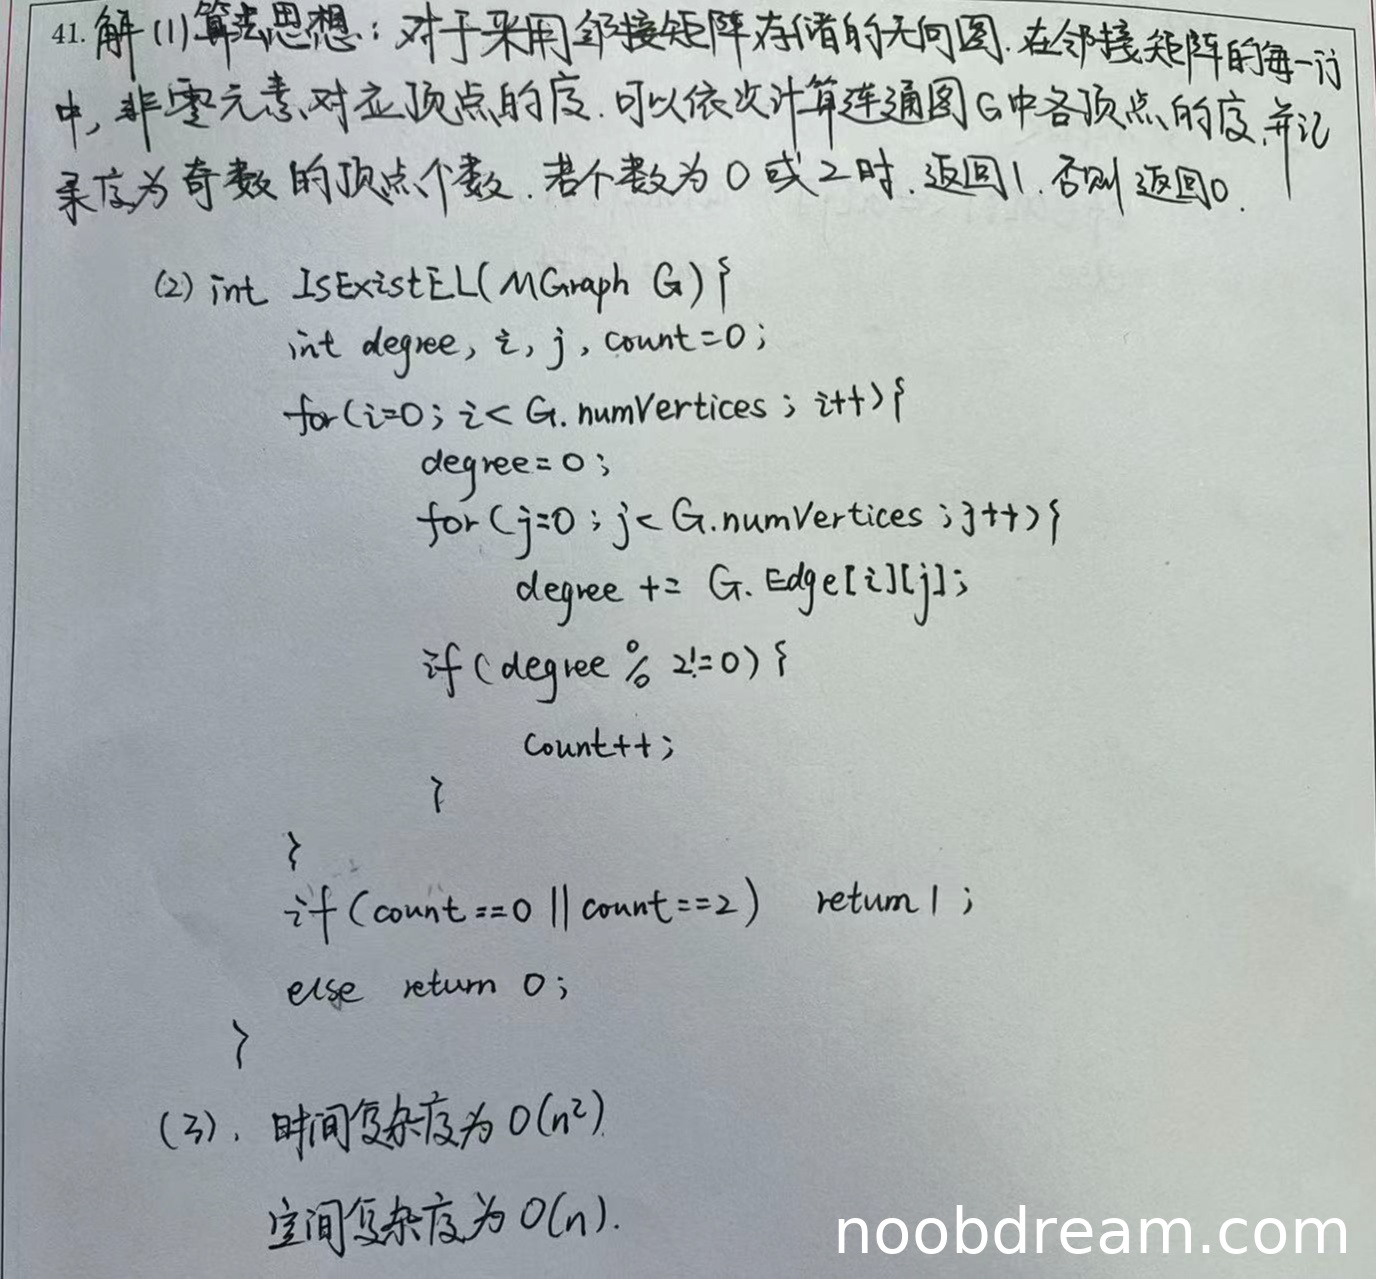 41. 解 (1) 算法思想：对于采用邻接矩阵存储的无向图. 在邻接矩阵的每一行
中, 非零元素对应顶点的度. 可以依次计算连通图G中各顶点的度, 并记
录度为奇数的顶点个数. 若个数为0或2时. 返回1. 否则返回0.
(2) int IsExistEL(MGraph G){
int degree, i, j, count=0;
for(i=0; i<G.numVertices; i++){
degree=0;
for(j=0; j<G.numVertices; j++){
degree += G.Edge[i][j];
if(degree % 2!=0){
count++;
}
}
if(count==0 || count==2) return 1;
else return 0;
}
(3). 时间复杂度为O(n²).
空间复杂度为O(n).
noobdream.com